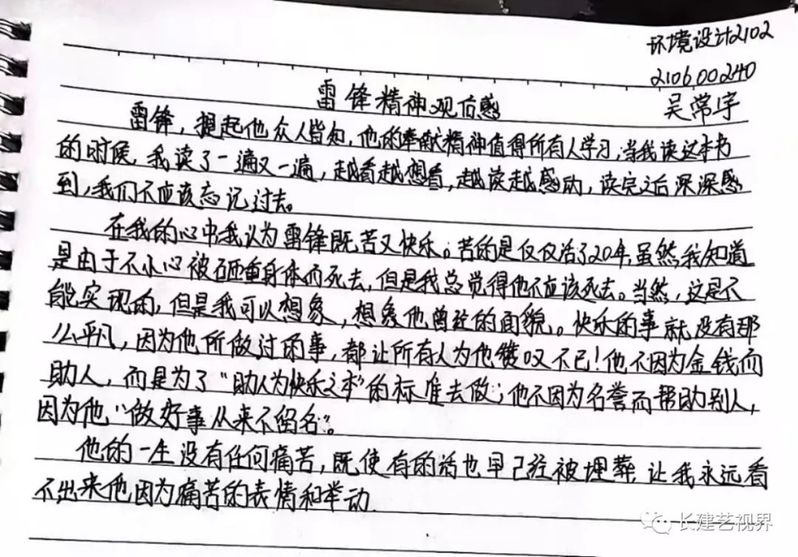 环境设计2102
210600240
吴常宇
雷锋精神观后感
雷锋，提起他众人皆知，他的奉献精神值得所有人学习，当我读这本书
的时候，我读了一遍又一遍，越看越想看，越读越感动，读完之后深深感
到，我们不应该忘记过去。
在我的心中我认为雷锋既苦又快乐。苦的是仅仅活了20年，虽然我知道
是由于不小心被砸重身体而死去，但是我总觉得他不应该死去。当然，这是不
能实现的，但是我可以想象，想象他曾经的面貌。快乐的事就没有那
么平凡，因为他所做过的事，都让所有人为他赞叹不已！他不因为金钱而
助人，而是为了“助人为快乐之本”的标准去做；他不因为名誉而帮助别人，
因为他“做好事从来不留名”。
他的一生没有任何痛苦，既使有的话也早已经被埋葬，让我永远看
不出来他因为痛苦的表情和举动
长建艺视界